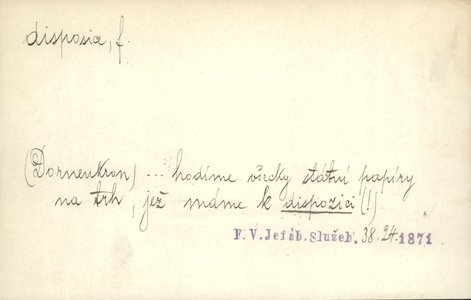 disposia, f.
(Dornenkron) ... hodíme všecky státní papíry
na trh, jež máme k dispozici (!).
F. V. Jeřáb. Služeb. 38.24. 1871